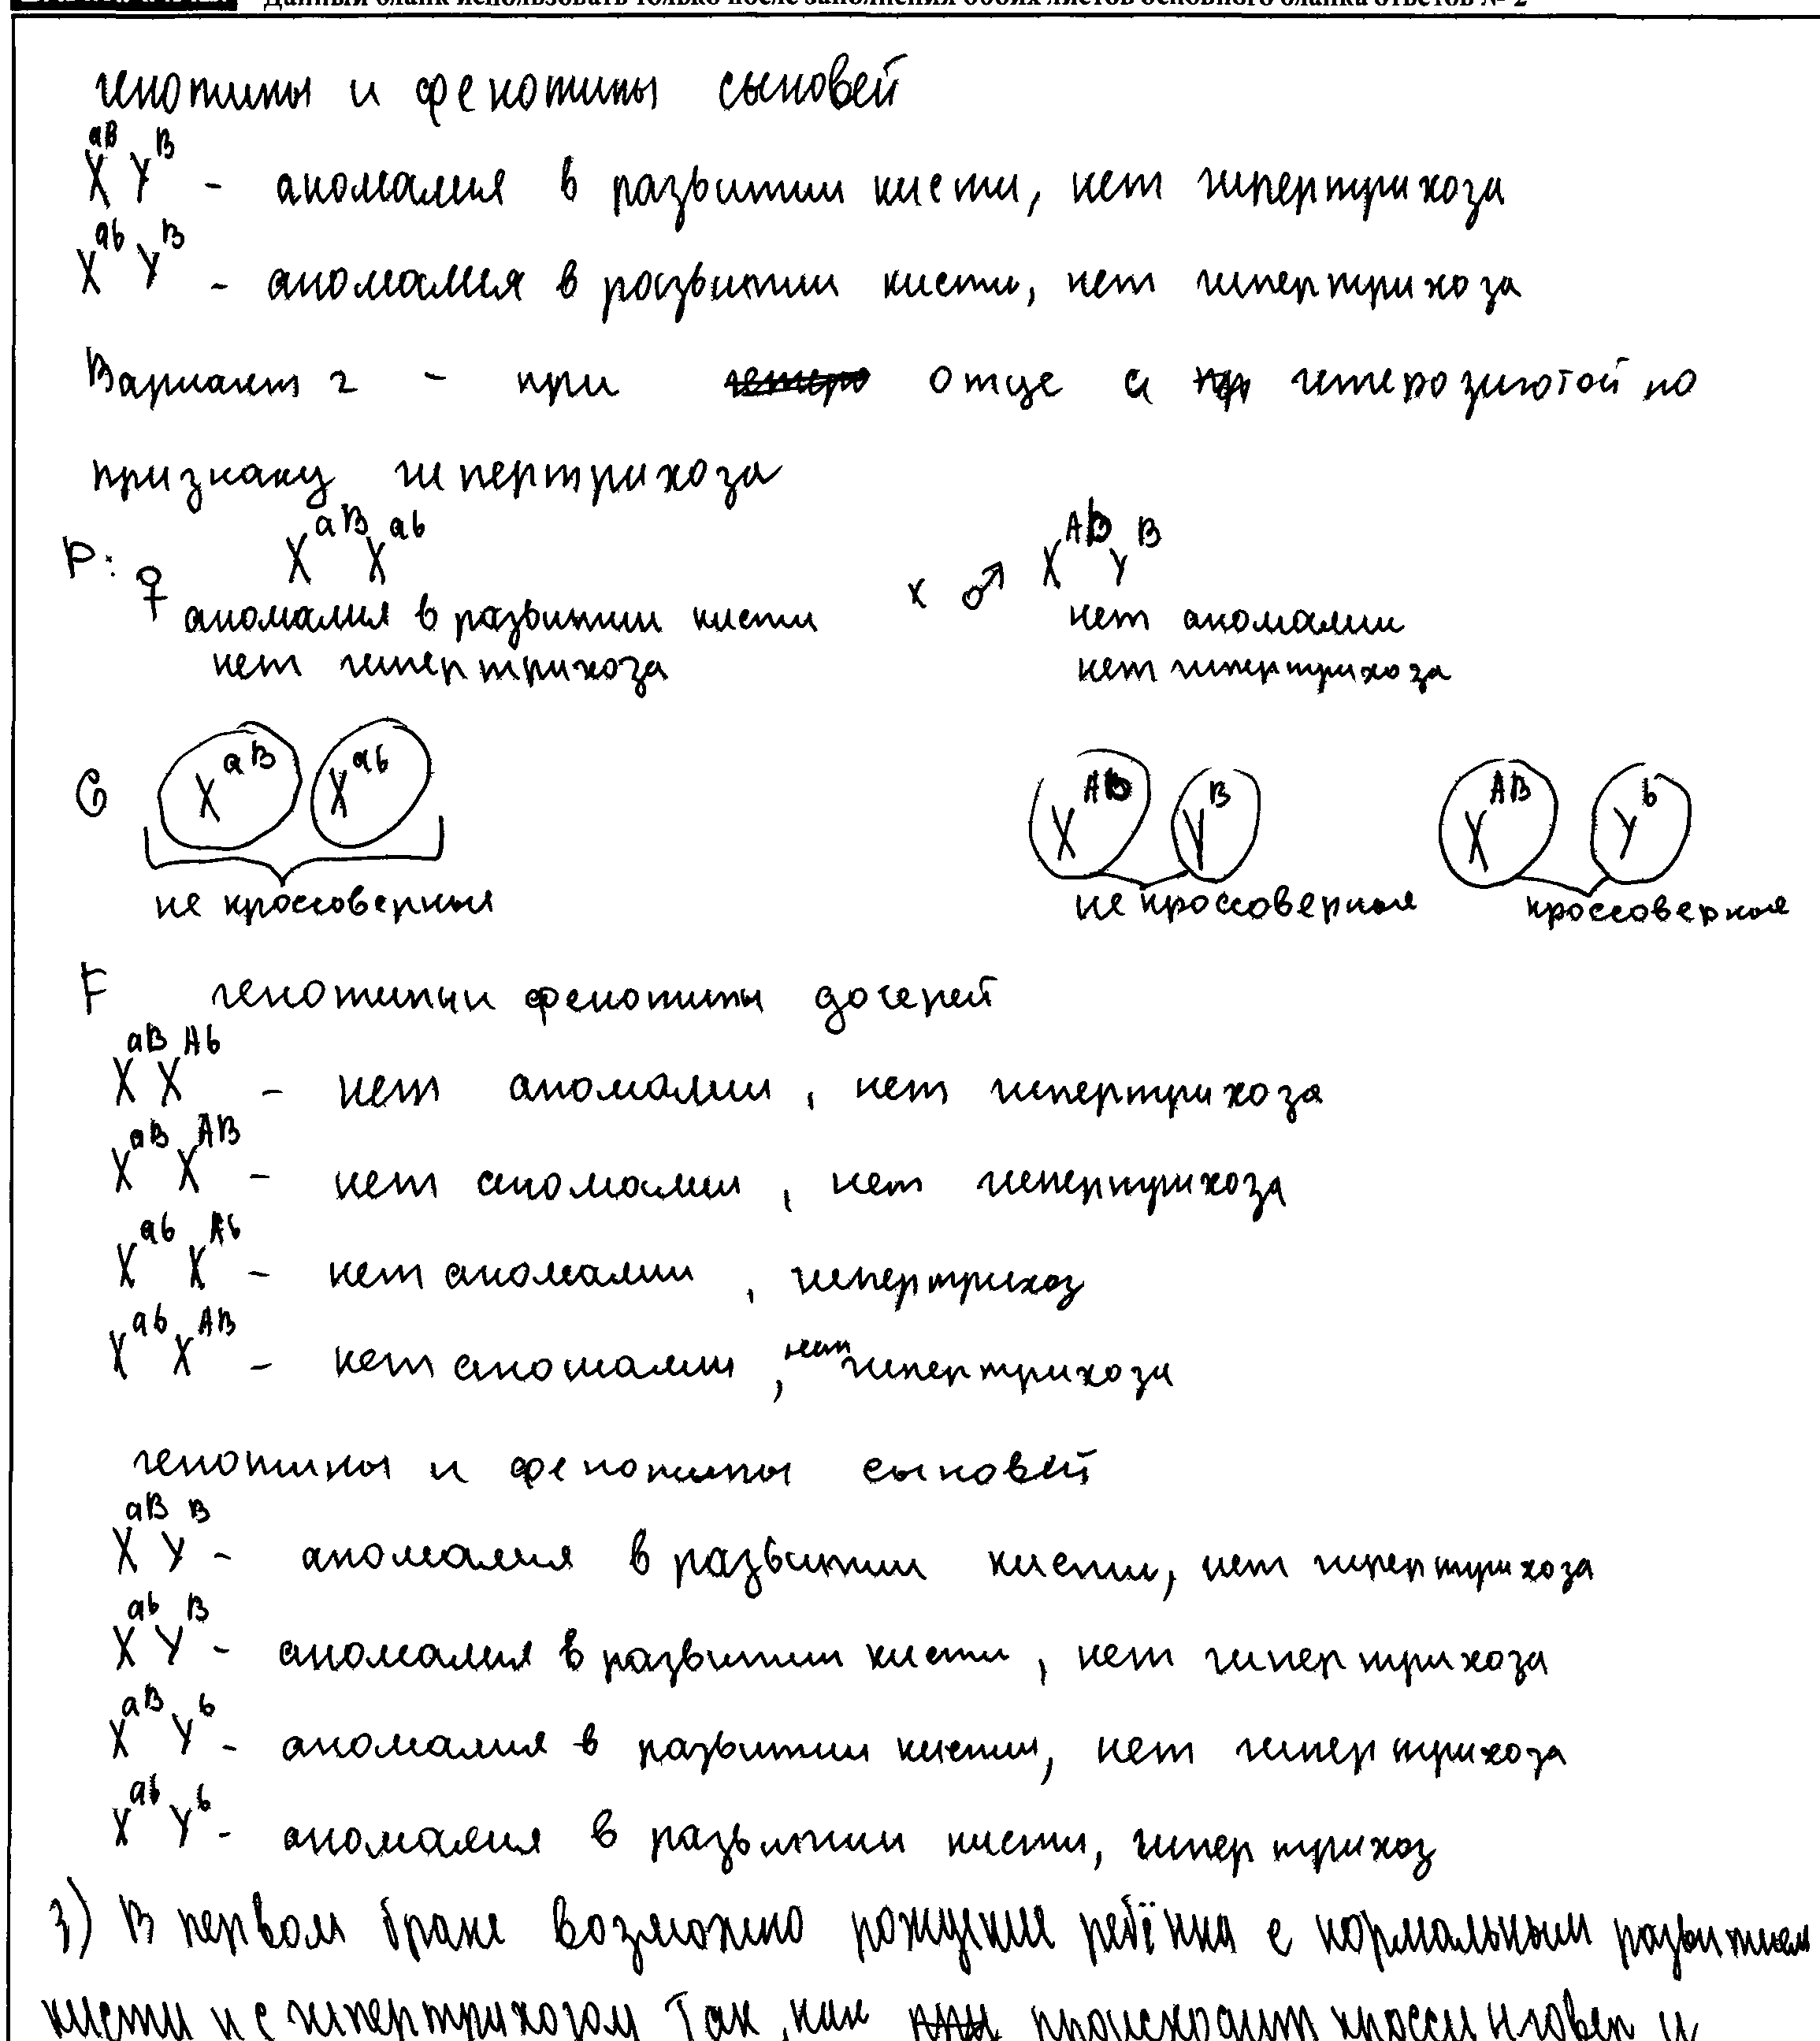 Данный бланк использовать только после заполнения обоих листов основного бланка ответов № 2
генотипы и фенотипы сыновей
X^aB Y^B - аномалия в развитии кисти, нет гипертрихоза
X^ab Y^B - аномалия в развитии кисти, нет гипертрихоза
Вариант 2 - при отце с гетерозиготой по
признаку гипертрихоза
P: ♀ X^aB X^ab x ♂ X^Ab Y^B
аномалия в развитии кисти нет аномалии
нет гипертрихоза нет гипертрихоза
G X^aB X^ab X^Ab Y^B X^AB Y^b
не кроссоверные не кроссоверные кроссоверные
F генотипы и фенотипы дочерей
X^aB X^Ab - нет аномалии, нет гипертрихоза
X^aB X^AB - нет аномалии, нет гипертрихоза
X^ab X^Ab - нет аномалии, гипертрихоз
X^ab X^AB - нет аномалии, нет гипертрихоза
генотипы и фенотипы сыновей
X^aB Y^B - аномалия в развитии кисти, нет гипертрихоза
X^ab Y^B - аномалия в развитии кисти, нет гипертрихоза
X^aB Y^b - аномалия в развитии кисти, нет гипертрихоза
X^ab Y^b - аномалия в развитии кисти, гипертрихоз
3) В первом браке возможно рождение ребёнка с нормальным развитием
кисти и с гипертрихозом Так как происходит кроссинговер и